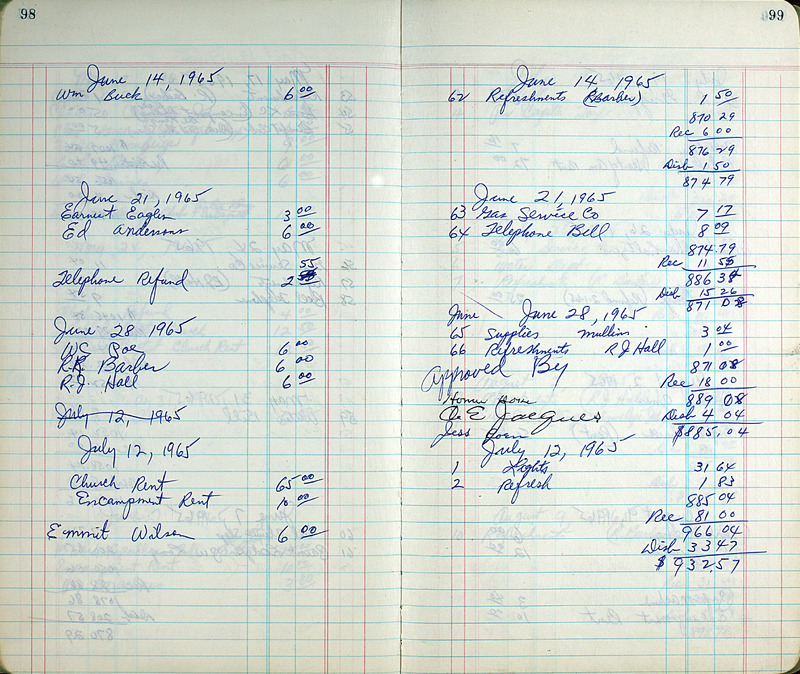 98
June 14, 1965
Wm Buck 6 00
June 21, 1965
Earnest Eagan 3 00
Ed Anderson 6 00
Telephone Refund 2 55
June 28 1965
WC Poe 6 00
R.R. Barber 6 00
R.J. Hall 6 00
July 12, 1965
July 12, 1965
Church Rent 65 00
Encampment Rent 10 00
Emmit Wilson 6 00
99
June 14, 1965
62 Refreshments (Barber) 1 50
870 29
Rec 6 00
876 29
Disb 1 50
874 79
June 21, 1965
63 Gas Service Co 7 17
64 Telephone Bill 8 09
874.79
Rec 11 55
886 34
Disb 15 26
871 08
June June 28, 1965
65 Supplies Mullins 3 04
66 Refreshments R J Hall 1 00
Approved By 871 08
Rec 18 00
Homer 889 08
E Jacques Disb 4 04
Jess $885.04
July 12, 1965
1 Lights 31 64
2 Refresh 1 83
885 04
Rec 81 00
966 04
Disb 33 47
$932.57